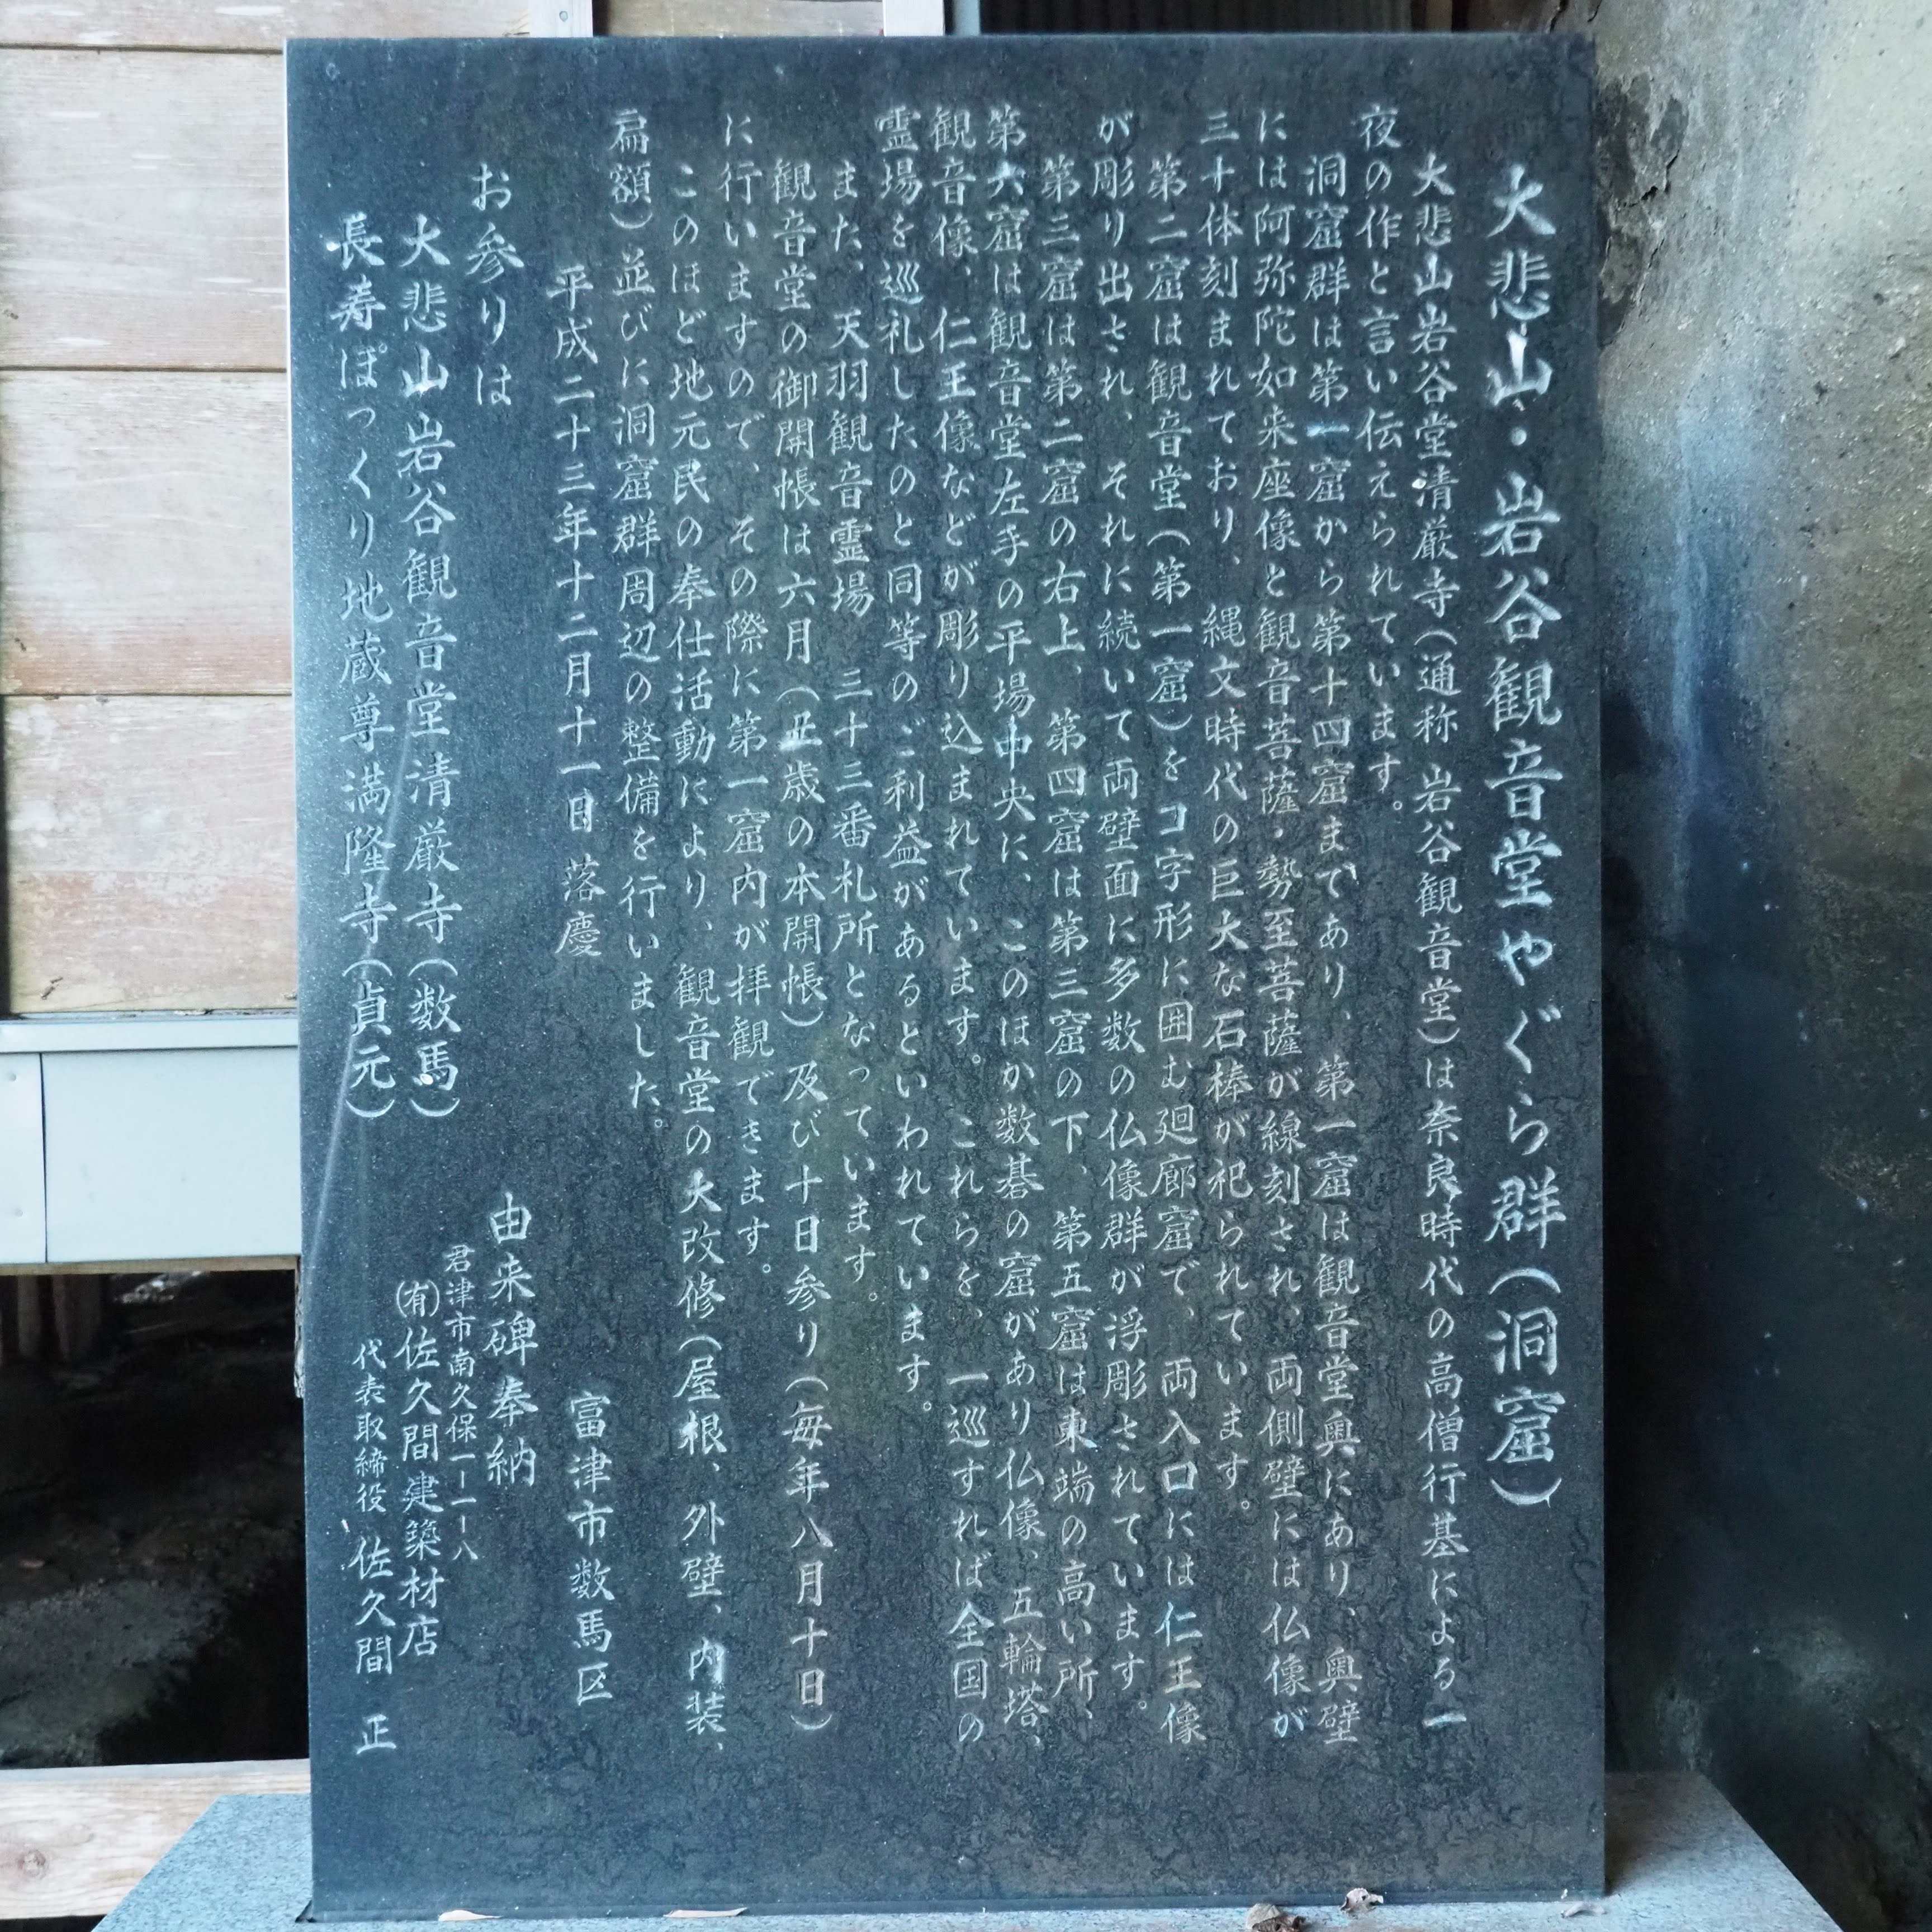 大悲山・岩谷観音堂やぐら群（洞窟）
大悲山岩谷堂清厳寺（通称 岩谷観音堂）は奈良時代の高僧行基による一
夜の作と言い伝えられています。
洞窟群は第一窟から第十四窟まであり、第一窟は観音堂奥にあり、奥壁
には阿弥陀如来座像と観音菩薩・勢至菩薩が線刻され、両側壁には仏像が
三十体刻まれており、縄文時代の巨大な石棒が祀られています。
第二窟は観音堂（第一窟）をコ字形に囲む廻廊窟で、両入口には仁王像
が彫り出され、それに続いて両壁面に多数の仏像群が浮彫されています。
第三窟は第二窟の右上、第四窟は第三窟の下、第五窟は東端の高い所、
第六窟は観音堂左手の平場中央に、このほか数碁の窟があり仏像、五輪塔、
観音像、仁王像などが彫り込まれています。これらを、一巡すれば全国の
霊場を巡礼したのと同等のご利益があるといわれています。
また、天羽観音霊場 三十三番札所となっています。
観音堂の御開帳は六月（丑歳の本開帳）及び十日参り（毎年八月十日）
に行いますので、その際に第一窟内が拝観できます。
このほど地元民の奉仕活動により、観音堂の大改修（屋根、外壁、内装、
扁額）並びに洞窟群周辺の整備を行いました。
平成二十三年十二月十一日 落慶
富津市数馬区
お参りは
大悲山岩谷観音堂清厳寺（数馬）
長寿ぽっくり地蔵尊満隆寺（貞元）
由来碑奉納
君津市南久保一ー一ー八
㈲佐久間建築材店
代表取締役 佐久間 正